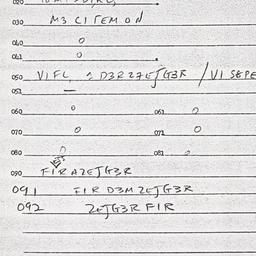 030 M3 CITEMON
040 0
041 0
050 VIFL, 2 D3R27EJG3R / VISEPE
051 —
060 0 061 0
070 0 071 0
080 0 081 0
090 FIRAZEJG3R
091 FIR D3M ZEJG3R
092 ZEJG3R FIR